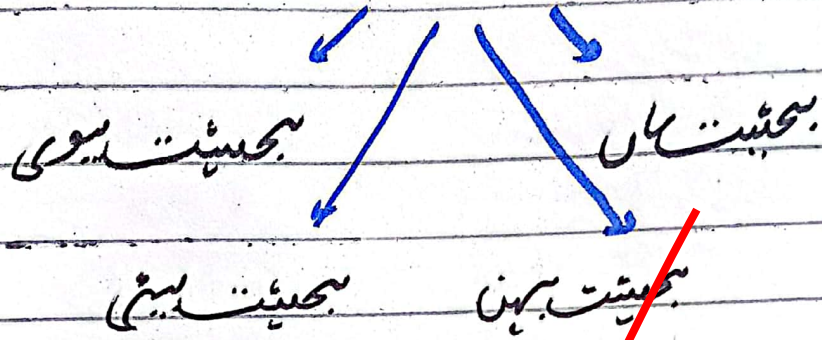 بحیثیت ماں بحیثیت بیوی
بحیثیت بہن بحیثیت بیٹی